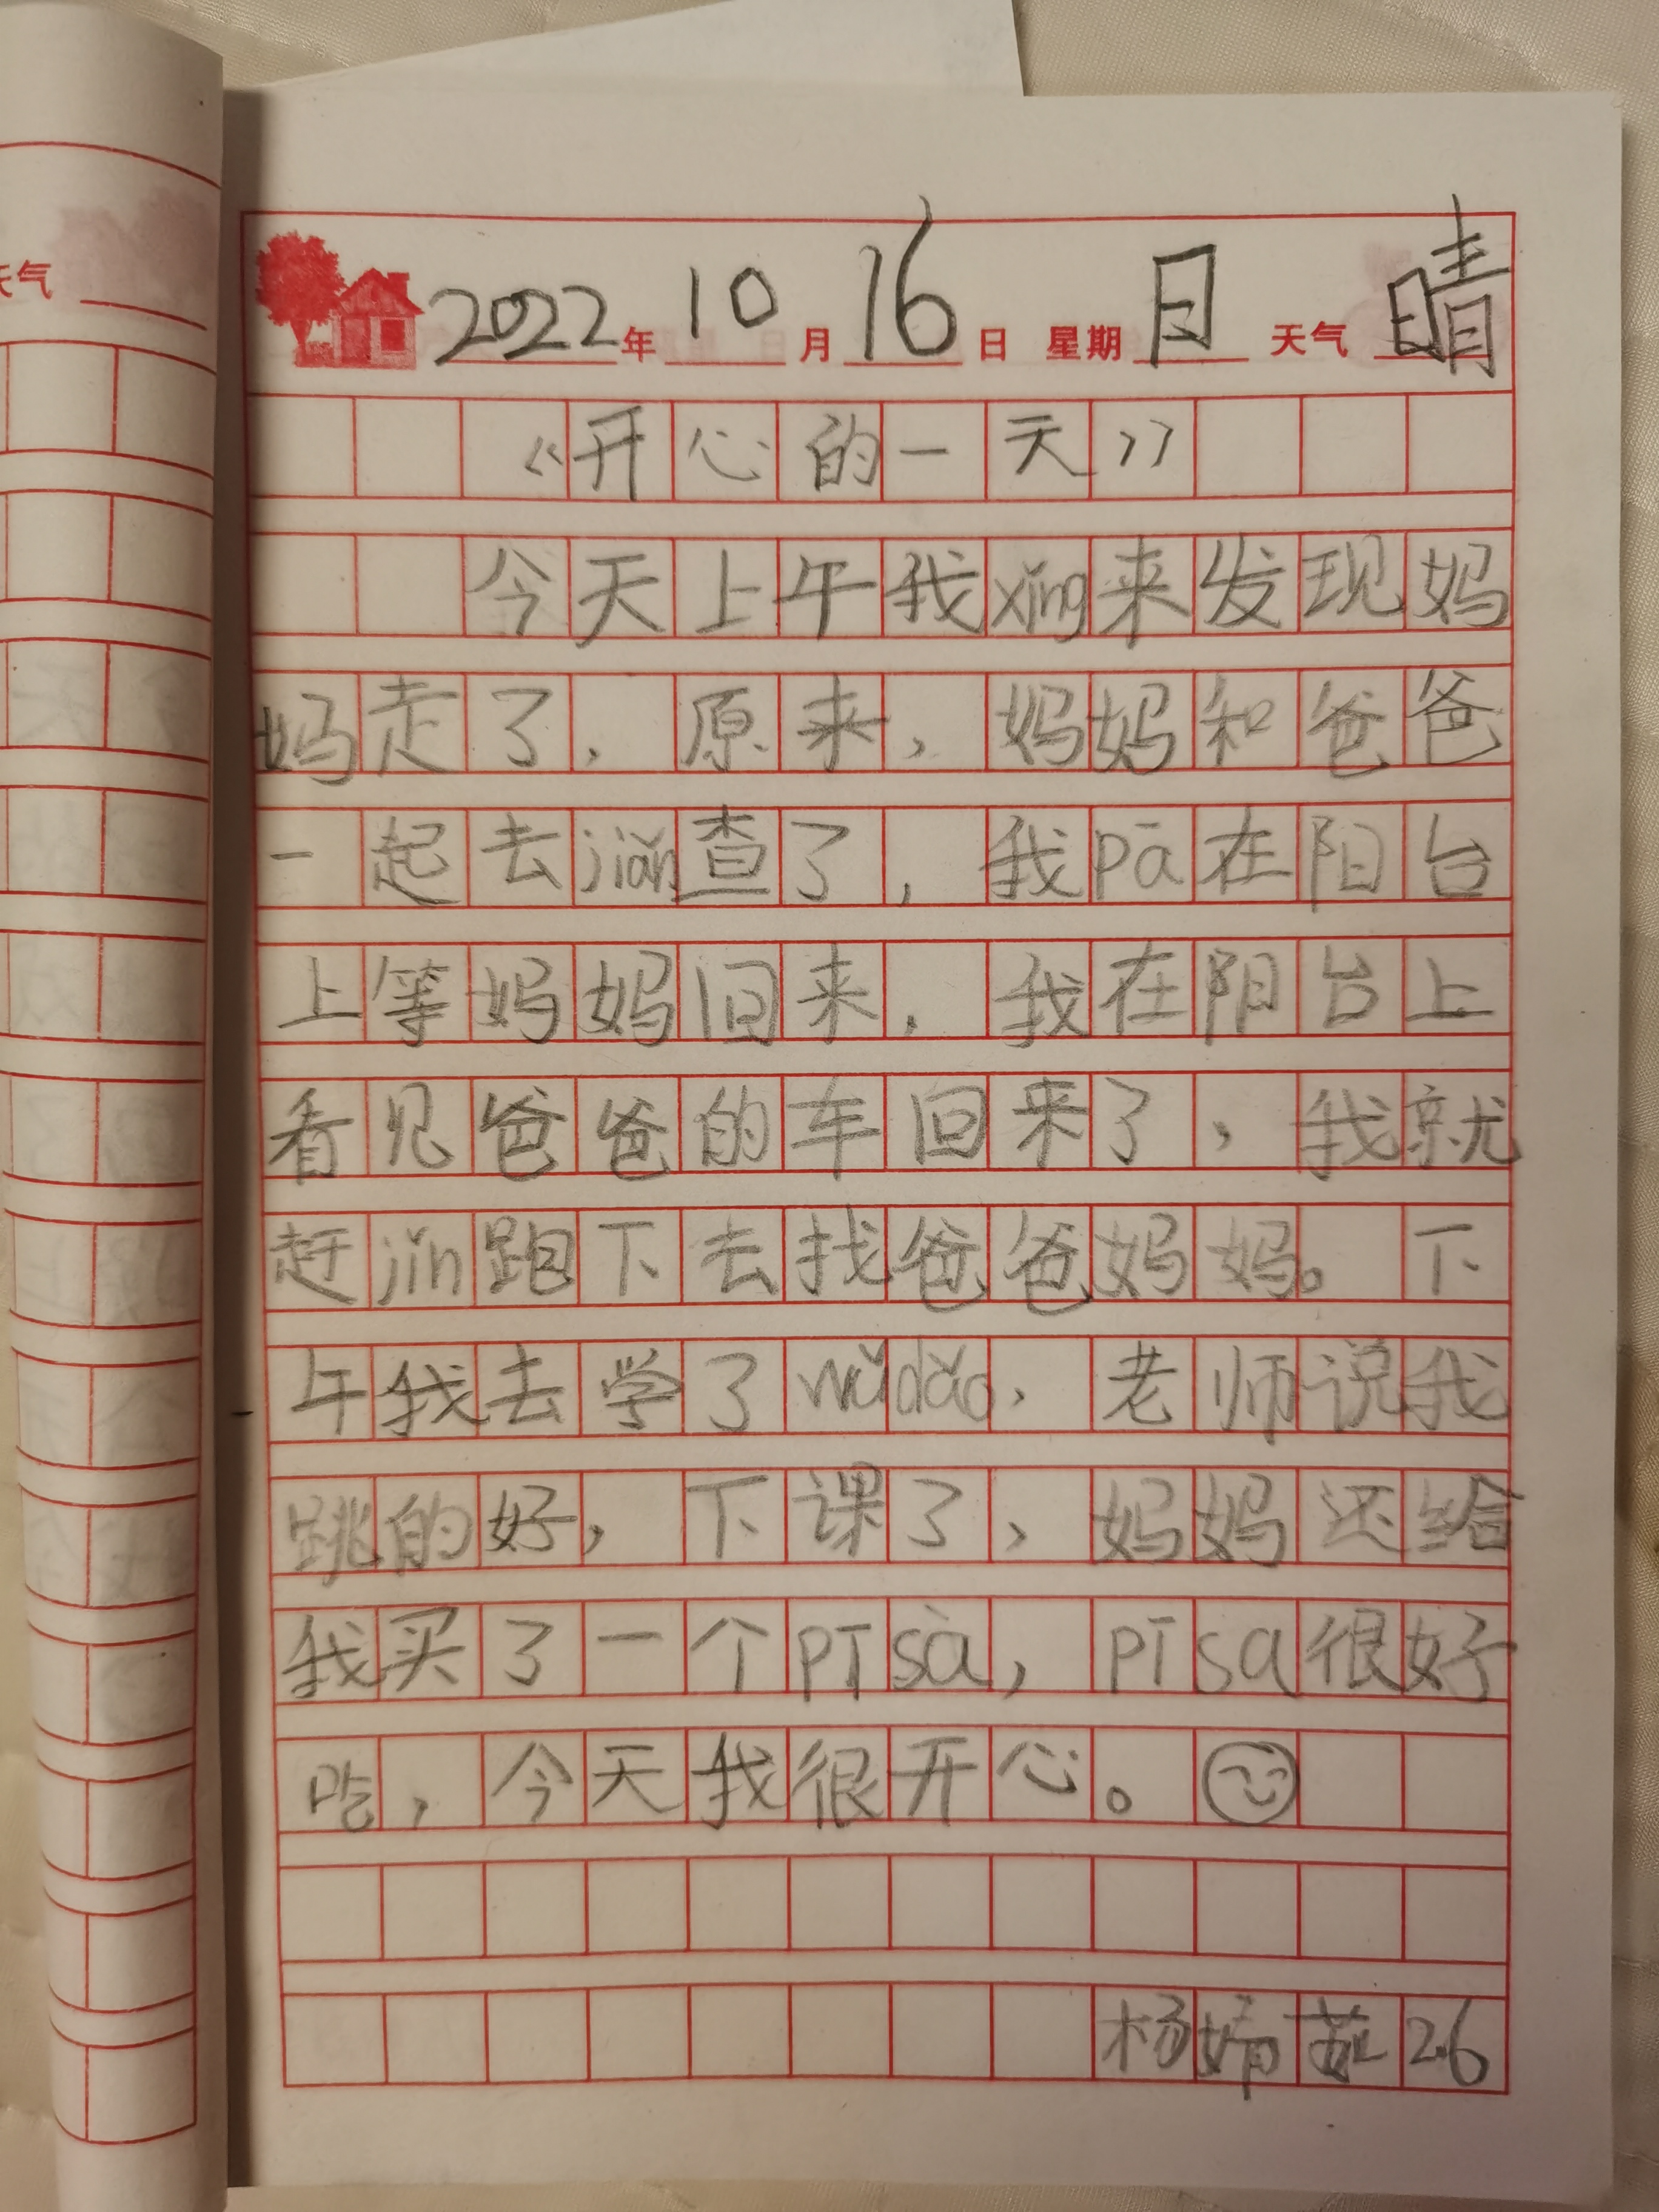 天气
2022年10月16日 星期日 天气 晴
《开心的一天》
今天上午我xǐng来发现妈
妈走了，原来，妈妈和爸爸
一起去jiǎn查了，我pā在阳台
上等妈妈回来，我在阳台上
看见爸爸的车回来了，我就
赶jǐn跑下去找爸爸妈妈。下
午我去学了wǔdǎo，老师说我
跳的好，下课了，妈妈还给
我买了一个pīsà，pīsa很好
吃，今天我很开心。
杨婷茹2.6